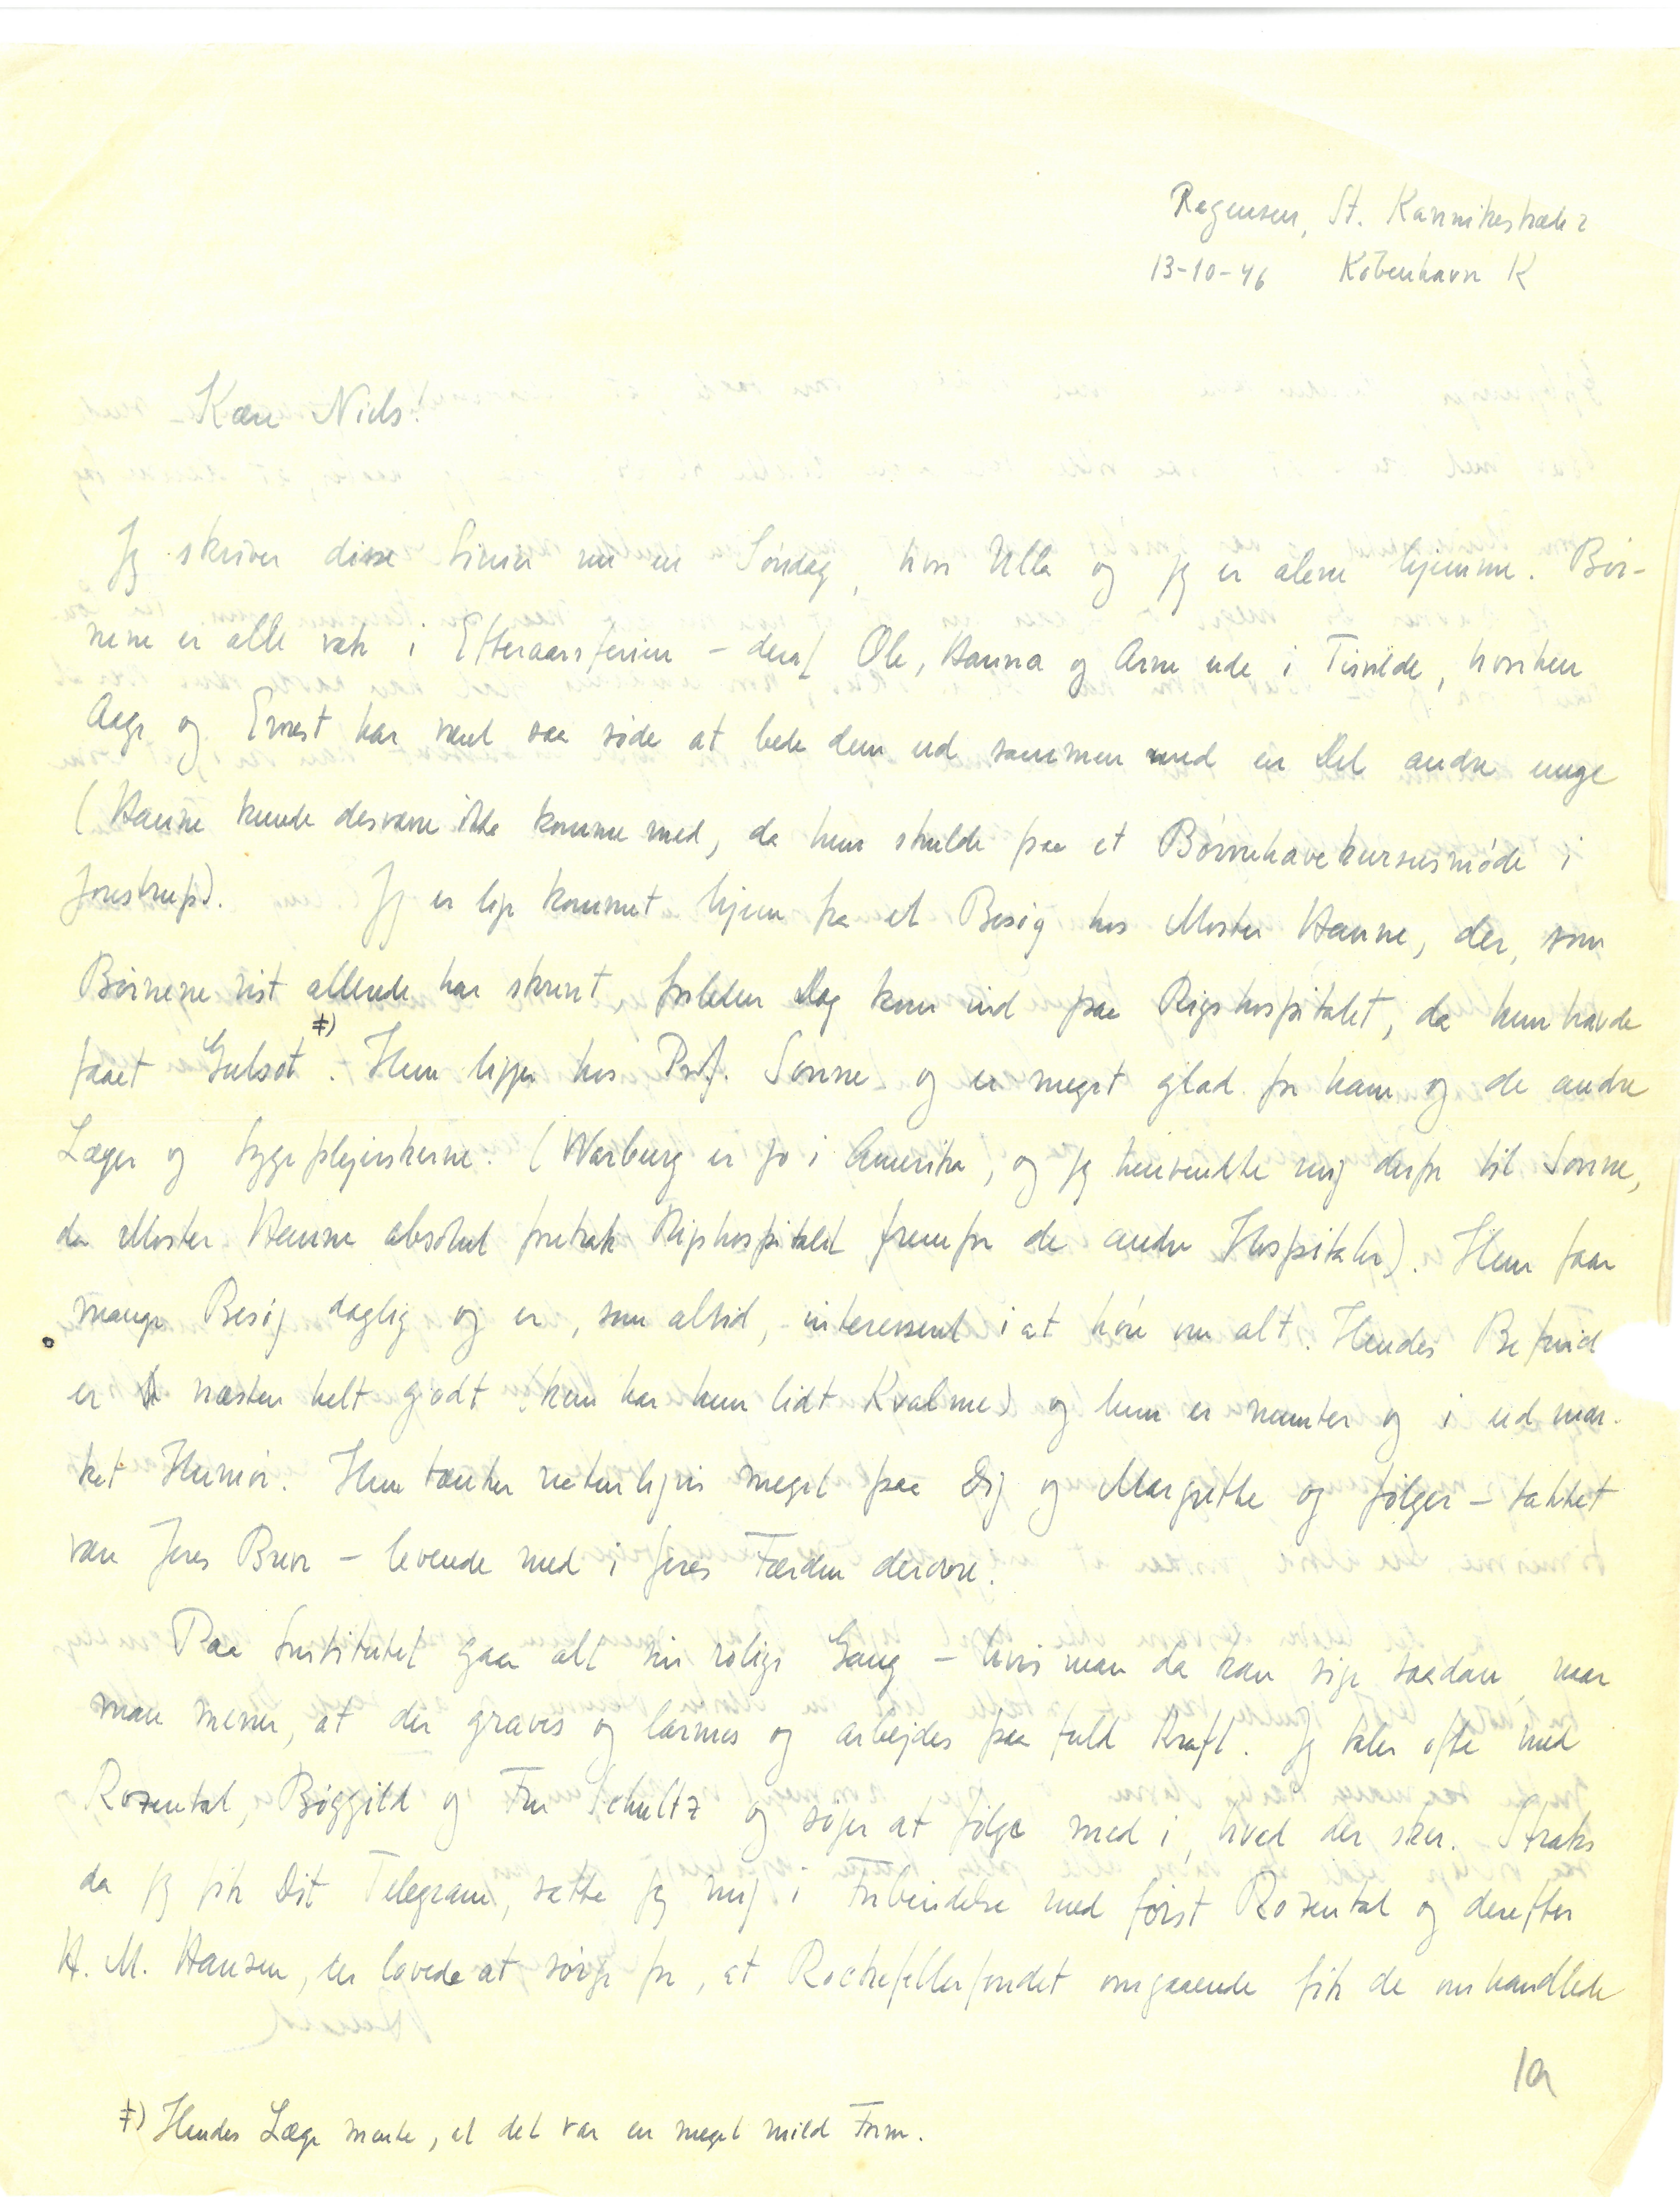 Regensen, St. Kannikestræde 2
13-10-46 København K
Kære Niels!
Jeg skriver disse Linier nu en Søndag, hvor Ulla og jeg er alene hjemme. Bør-
nene er alle væk i Efteraarsferien – deraf Ole, Hanna og Arne ude i Tisvilde, hvorhen
Aage og Ernest har været saa søde at bede dem ud sammen med en Del andre unge
(Hanne kunde desværre ikke komme med, da hun skulde paa et Børnehavekursusmøde i
Jonstrup). Jeg er lige kommet hjem fra et Besøg hos Moster Hanne, der, som
Børnene vist allerede har skrevet, forleden Dag kom ind paa Rigshospitalet, da hun havde
faaet Gulsot ‡). Hun ligger hos Prof. Sonne og er meget glad for ham og de andre
Læger og Sygeplejerskerne. (Warburg er jo i Amerika, og jeg henvendte mig derfor til Sonne,
da Moster Hanne absolut foretrak Rigshospitalet fremfor de andre Hospitaler). Hun faar
mange Besøg daglig og er, som altid, interesseret i at høre om alt. Hendes Befind
er næsten helt godt (kun har hun lidt Kvalme) og hun er munter og i udmær-
ket Humør. Hun tænker naturligvis meget paa Dig og Margrethe og følger – takket
være Jeres Breve – levende med i Jeres Færden derovre.
Paa Institutet gaar alt sin rolige Gang – hvis man da kan sige saadan, naar
man mener, at der graves og larmes og arbejdes paa fuld Kraft. Jeg taler ofte med
Rozental, Bøggild og Fru Schultz og søger at følge med i, hvad der sker. Straks
da jeg fik Dit Telegram, satte jeg mig i Forbindelse med først Rozental og derefter
H. M. Hansen, der lovede at sørge for, at Rockefellerfondet omgaaende fik de omhandlede
1a
‡) Hendes Læge mente, at det var en meget mild Form.